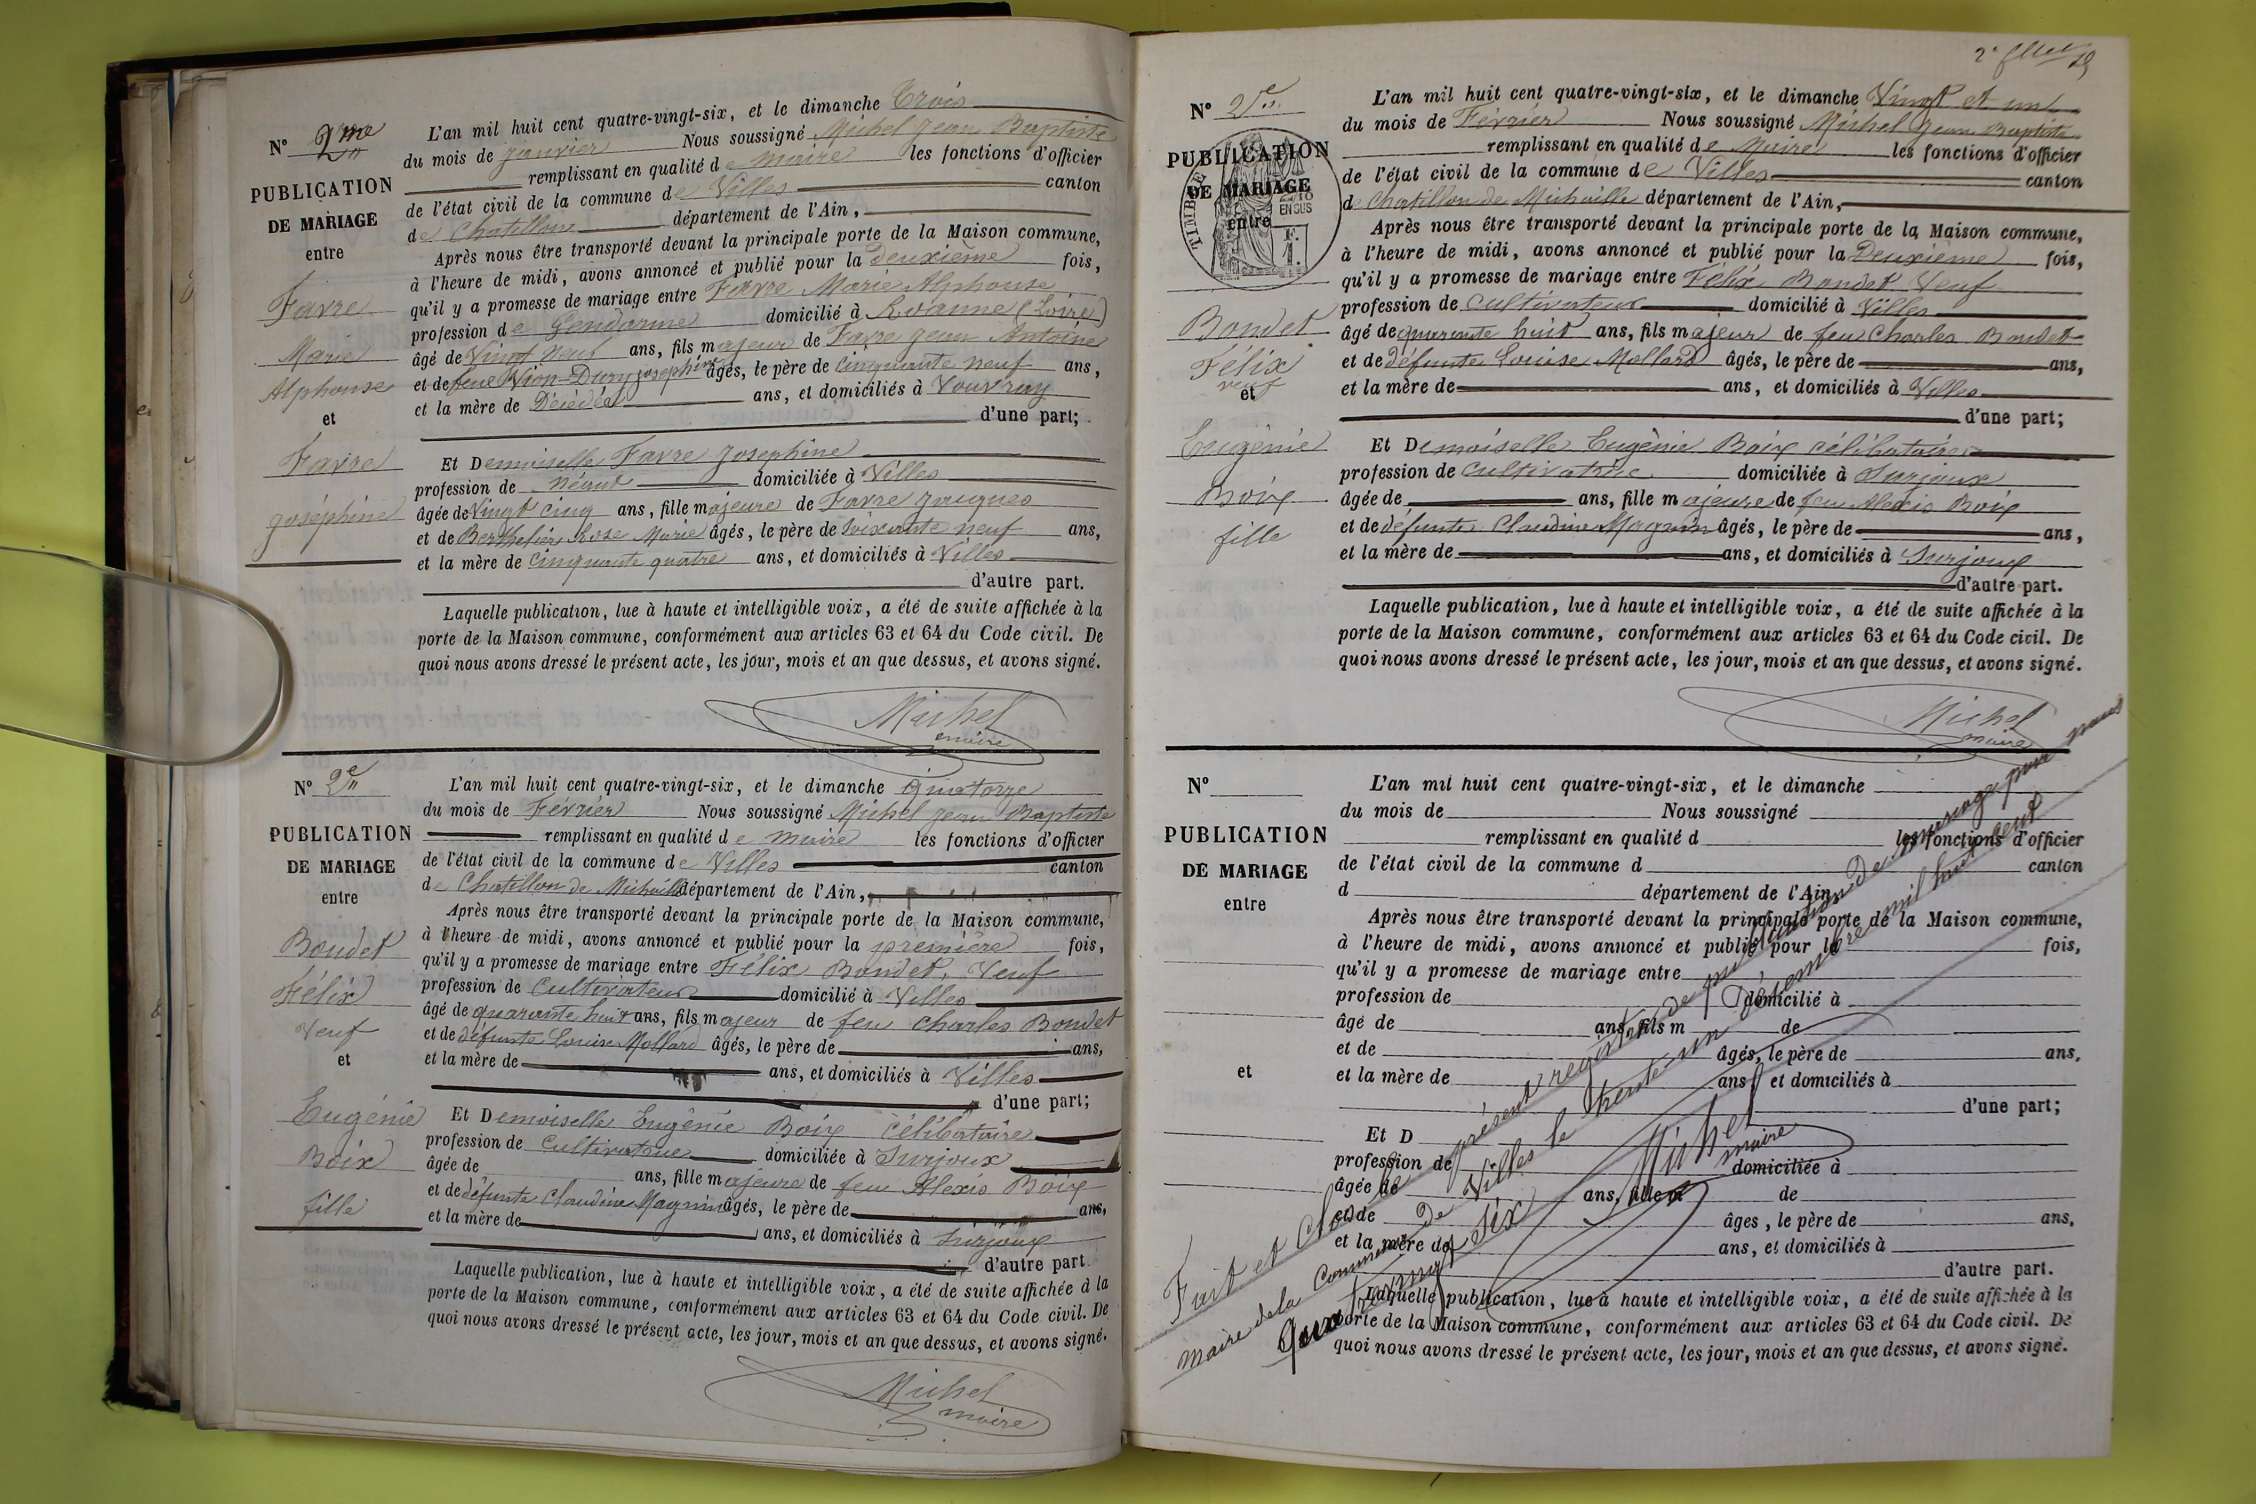 N° 2me
PUBLICATION
DE MARIAGE
entre
Favre
Marie
Alphonse
et
Favre
joséphine
L'an mil huit cent quatre-vingt-six, et le dimanche Trois
du mois de janvier Nous soussigné Michel Jean Baptiste
remplissant en qualité de maire les fonctions d'officier
de l'état civil de la commune de Villes canton
de Chatillon département de l'Ain,
Après nous être transporté devant la principale porte de la Maison commune,
à l'heure de midi, avons annoncé et publié pour la Deuxième fois,
qu'il y a promesse de mariage entre Favre Marie Alphonse
profession de Gendarme domicilié à Roanne (Loire)
âgé de Vingt neuf ans, fils majeur de Favre jean Antoine
et de feue Vion-Dury josephine âgés, le père de cinquante neuf ans,
et la mère de Décédée ans, et domiciliés à Vouvray
d'une part;
Et Demoiselle Favre Josephine
profession de Néant domiciliée à Villes
âgée de Vingt cinq ans, fille majeure de Favre jacques
et de Berthelier Rose Marie âgés, le père de soixante neuf ans,
et la mère de cinquante quatre ans, et domiciliés à Villes
d'autre part.
Laquelle publication, lue à haute et intelligible voix, a été de suite affichée à la
porte de la Maison commune, conformément aux articles 63 et 64 du Code civil. De
quoi nous avons dressé le présent acte, les jour, mois et an que dessus, et avons signé.
Michel
maire
N° 2e
PUBLICATION
DE MARIAGE
entre
Boudet
Félix
Veuf
et
Eugénie
Boix
fille
L'an mil huit cent quatre-vingt-six, et le dimanche quatorze
du mois de Février Nous soussigné Michel jean Baptiste
remplissant en qualité de maire les fonctions d'officier
de l'état civil de la commune de Villes canton
de Chatillon de Michaille département de l'Ain,
Après nous être transporté devant la principale porte de la Maison commune,
à l'heure de midi, avons annoncé et publié pour la première fois,
qu'il y a promesse de mariage entre Félix Boudet, Veuf
profession de Cultivateur domicilié à Villes
âgé de quarante huit ans, fils majeur de feu Charles Boudet
et de défunte Louise Mollard âgés, le père de ans,
et la mère de ans, et domiciliés à Villes
d'une part;
Et Demoiselle Eugénie Boix célibataire
profession de Cultivatrice domiciliée à Surjoux
âgée de ans, fille majeure de feu Alexis Boix
et de défunte Claudine Magnin âgés, le père de ans,
et la mère de ans, et domiciliés à Surjoux
d'autre part.
Laquelle publication, lue à haute et intelligible voix, a été de suite affichée à la
porte de la Maison commune, conformément aux articles 63 et 64 du Code civil. De
quoi nous avons dressé le présent acte, les jour, mois et an que dessus, et avons signé.
Michel
maire
N° 2e
PUBLICATION
DE MARIAGE
entre
TIMBRE
EN SUS
Boudet
Félix
veuf
et
Eugénie
Boix
fille
L'an mil huit cent quatre-vingt-six, et le dimanche Vingt et un
du mois de Février Nous soussigné Michel Jean Baptiste
remplissant en qualité de Maire les fonctions d'officier
de l'état civil de la commune de Villes canton
d Chatillon de Michaille département de l'Ain,
Après nous être transporté devant la principale porte de la Maison commune,
à l'heure de midi, avons annoncé et publié pour la Deuxième fois,
qu'il y a promesse de mariage entre Félix Boudet Veuf
profession de cultivateur domicilié à Villes
âgé de quarante huit ans, fils majeur de feu Charles Boudet
et de défunte Louise Mollard âgés, le père de ans,
et la mère de ans, et domiciliés à Villes
d'une part;
Et Demoiselle Eugénie Boix célibataire
profession de Cultivatrice domiciliée à Surjoux
âgée de ans, fille majeure de feu Alexis Boix
et de défunte Claudine Magnin âgés, le père de ans,
et la mère de ans, et domiciliés à Surjoux
d'autre part.
Laquelle publication, lue à haute et intelligible voix, a été de suite affichée à la
porte de la Maison commune, conformément aux articles 63 et 64 du Code civil. De
quoi nous avons dressé le présent acte, les jour, mois et an que dessus, et avons signé.
Michel
maire
N°
PUBLICATION
DE MARIAGE
entre
et
L'an mil huit cent quatre-vingt-six, et le dimanche
du mois de Nous soussigné
remplissant en qualité d les fonctions d'officier
de l'état civil de la commune d canton
d département de l'Ain,
Après nous être transporté devant la principale porte de la Maison commune,
à l'heure de midi, avons annoncé et publié pour la fois,
qu'il y a promesse de mariage entre
profession de domicilié à
âgé de ans, fils m de
et de âgés, le père de ans,
et la mère de ans, et domiciliés à
d'une part;
Et D
profession de domiciliée à
âgée de ans, fille m de
et de âgés, le père de ans,
et la mère de ans, et domiciliés à
d'autre part.
Laquelle publication, lue à haute et intelligible voix, a été de suite affichée à la
porte de la Maison commune, conformément aux articles 63 et 64 du Code civil. De
quoi nous avons dressé le présent acte, les jour, mois et an que dessus, et avons signé.
Fait et clos le présent registre de publication de mariage par nous
maire de la commune de Villes le trente-un Décembre mil huit cent
quatre vingt six
Michel
maire